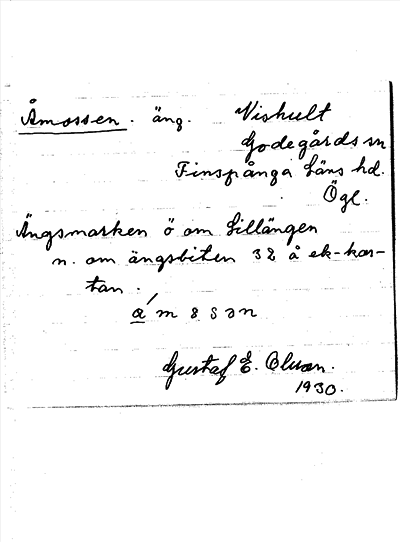 Åmossen. äng. Nishult
Godegårds sn
Finspånga läns hd.
Ögl.
Ängsmarken ö om Lillängen
n. om ängsbiten 32 å ek-kar-
tan.
Gustaf E.
1930.